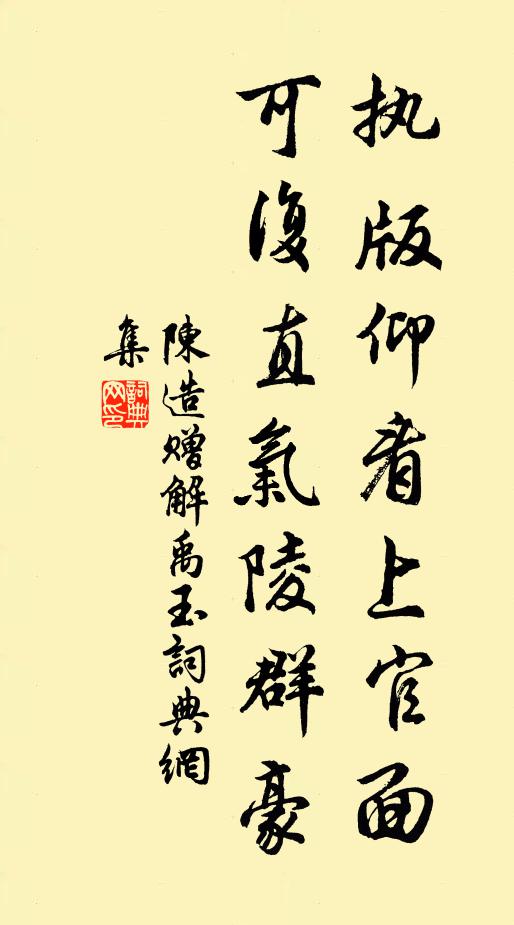 执版仰看上官面
可復直氣陵群豪
陳造赠解禹玉詞典網
集
詞典网印